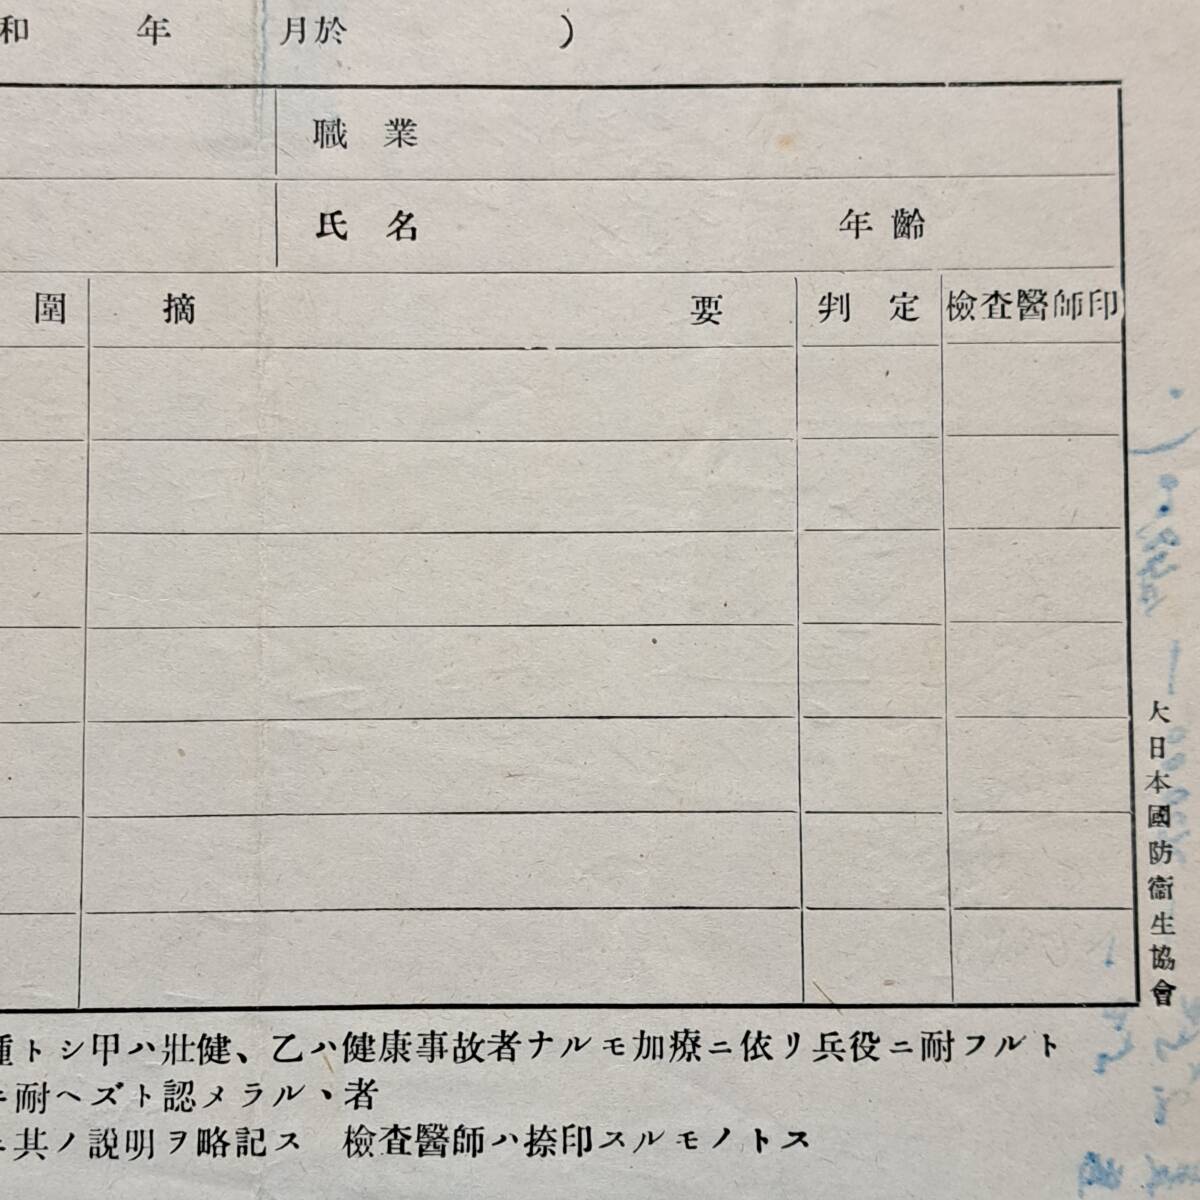 和 年 月於 )
職 業
氏 名 年 齡
圍 摘 要 判 定 檢査醫師印
種トシ甲ハ壯健、乙ハ健康事故者ナルモ加療ニ依リ兵役ニ耐フルト
ニ耐ヘズト認メラルヽ者
ニ其ノ說明ヲ略記ス 檢査醫師ハ捺印スルモノトス
大日本國防衞生協會